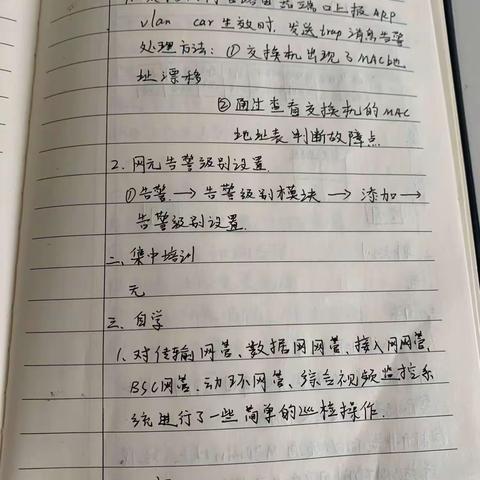 端口上报ARP
vlan car生效时,发送trap消息告警
处理方法:①交换机出现了MAC地
址漂移
②通过查看交换机的MAC
地址表判断故障点
2.网元告警级别设置
①告警→告警级别模块→添加→
告警级别设置
二、集中培训
无
三、自学
1、对传输网管、数据网网管、接入网网管、
BSC网管、动环网管、综合视频监控系
统进行了一些简单的巡检操作.